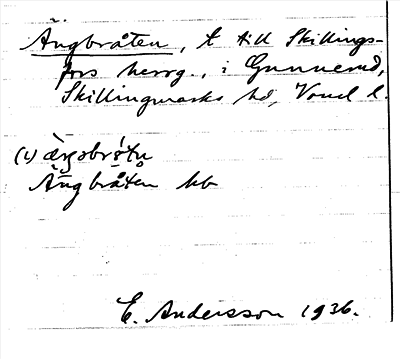 Ängbråten, t till Skillings-
fors herrg., i Gunnerud,
Skillingmarks sn, Värml l.
(ɩ) æŋəbrǫ́tn
Ängbråten kb
E. Andersson 1936.